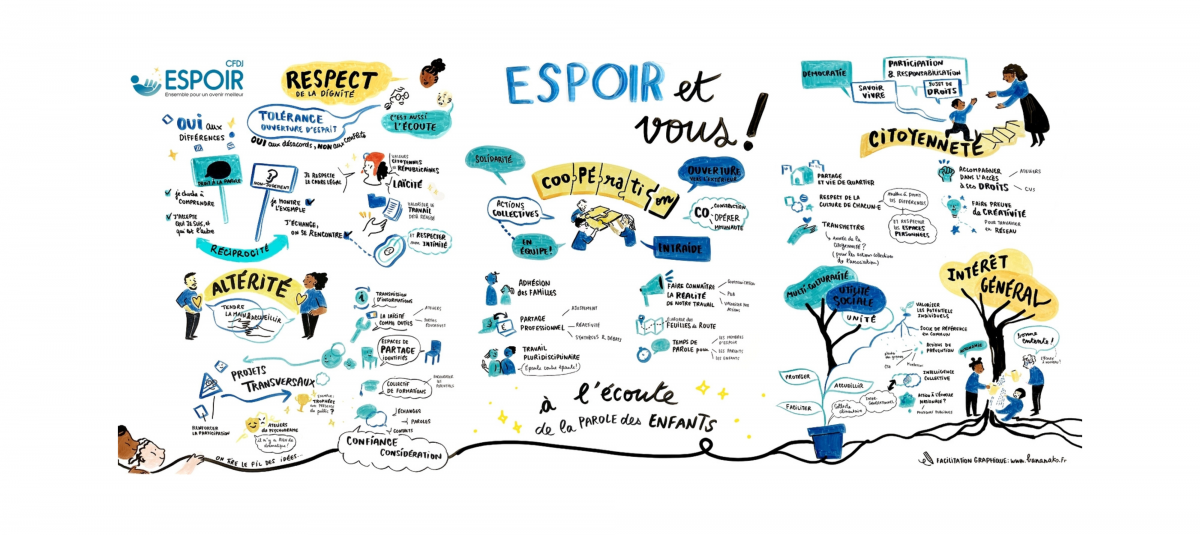 CFDJ
ESPOIR
Ensemble pour un avenir meilleur
RESPECT
DE LA DIGNITÉ
TOLÉRANCE
OUVERTURE D'ESPRIT
OUI aux désaccords, NON aux conflits
C'EST AUSSI
L'ÉCOUTE
OUI aux
DIFFÉRENCES
DROIT À LA PAROLE
NON-JUGEMENT
je cherche à
COMPRENDRE
J'ACCEPTE
qui je suis, et
qui est l'autre
RÉCIPROCITÉ
JE RESPECTE
LE CADRE LÉGAL
je MONTRE
L'EXEMPLE
J'ÉCHANGE,
ON SE RENCONTRE
VALEURS
CITOYENNES
RÉPUBLICAINES
LAÏCITÉ
VALORISER LE
TRAVAIL
DÉJÀ RÉALISÉ
RESPECTER
INTIMITÉ
ALTÉRITÉ
TENDRE
LA MAIN
ACCUEILLIR
TRANSMISSION
D'INFORMATIONS
LA LAÏCITÉ
COMME OUTILS
ATELIERS
ESPACES DE
PARTAGE
IDENTIFIÉS
PROJETS
TRANSVERSAUX
COLLECTIF
DE FORMATIONS
ÉCHANGER
PAROLES
CONFLITS
RENFORCER
LA PARTICIPATION
ATELIERS
DE PSYCHODRAME
il n'y a rien de
dramatique !
CONFIANCE
CONSIDÉRATION
ON TIRE LE FIL DES IDÉES...
ESPOIR et
vous !
SOLIDARITÉ
COOPÉRATION
OUVERTURE
VERS L'EXTÉRIEUR
ACTIONS
COLLECTIVES
EN
ÉQUIPE !
CO
CONSTRUCTION
OPÉRER
ENTRAIDE
ADHÉSION
des FAMILLES
PARTAGE
PROFESSIONNEL
RÉACTIVITÉ
TRAVAIL
PLURIDISCIPLINAIRE
Épaule contre épaule !
FAIRE CONNAÎTRE
LA RÉALITÉ
DE NOTRE TRAVAIL
FEUILLES de ROUTE
TEMPS
DE PAROLE pour
LES MEMBRES
D'ESPOIR
LES PARENTS
LES ENFANTS
à l'écoute
de la PAROLE des ENFANTS
DÉMOCRATIE
PARTICIPATION
& RESPONSABILISATION
SAVOIR
VIVRE
SUJET DE
DROITS
CITOYENNETÉ
PARTAGE
ET VIE DE QUARTIER
RESPECT DE LA
CULTURE DE CHACUN·E
TRANSMETTRE
(pour les actions collectives
de l'association)
LES DIFFÉRENCES
ET RESPECTER
LES ESPACES
PERSONNELS
ACCOMPAGNER
DANS L'ACCÈS
à ses DROITS
ATELIERS
CVS
FAIRE PREUVE
de CRÉATIVITÉ
POUR TRAVAILLER
EN RÉSEAU
MULTI-CULTURALITÉ
UTILITÉ
SOCIALE
UNITÉ
INTÉRÊT
GÉNÉRAL
VALORISER
LES POTENTIELS
INDIVIDUELS
SOCLE DE RÉFÉRENCE
EN COMMUN
ACTIONS DE
PRÉVENTION
INTELLIGENCE
COLLECTIVE
ACTION À L'ÉCHELLE
NATIONALE ?
PROTÉGER
ACCUEILLIR
FACILITER
Collecte
alimentaire
FACILITATION GRAPHIQUE: www.bananako.fr